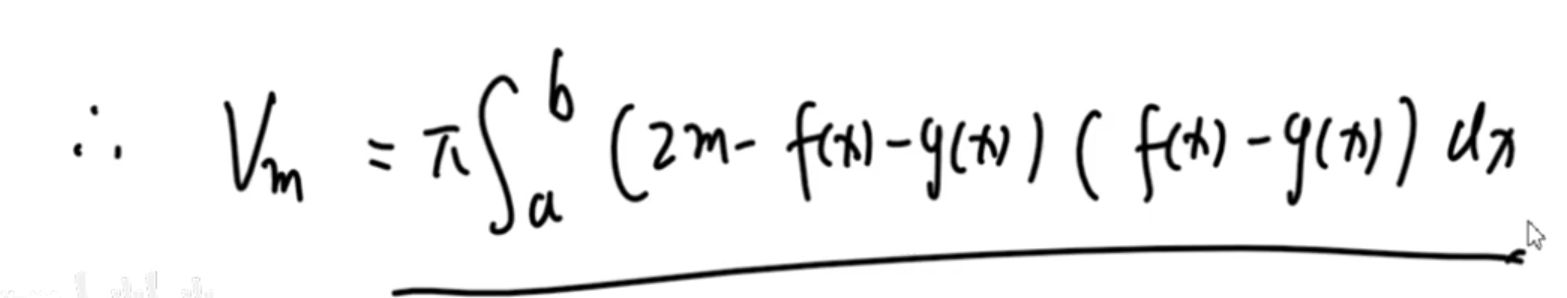 ∴ Vₘ = π∫ₐᵇ (2m - f(x) - g(x)) (f(x) - g(x)) dx